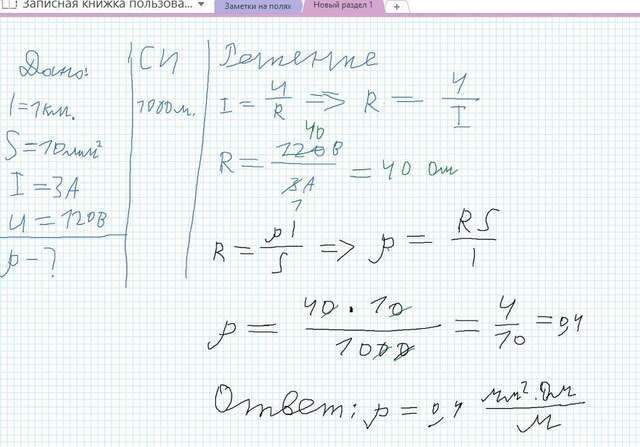 Записная книжка пользова...
Заметки на полях
Новый раздел 1
Дано:
l = 1 км.
S = 10 мм²
I = 3 А
U = 120 В
ρ - ?
СИ
1000 м.
Решение
I = U/R => R = U/I
R = 120 В / 3 А = 40 Ом
40
1
R = ρl/S => ρ = RS/l
ρ = 40 · 10 / 1000 = 4/10 = 0,4
Ответ: ρ = 0,4 мм² · Ом / м